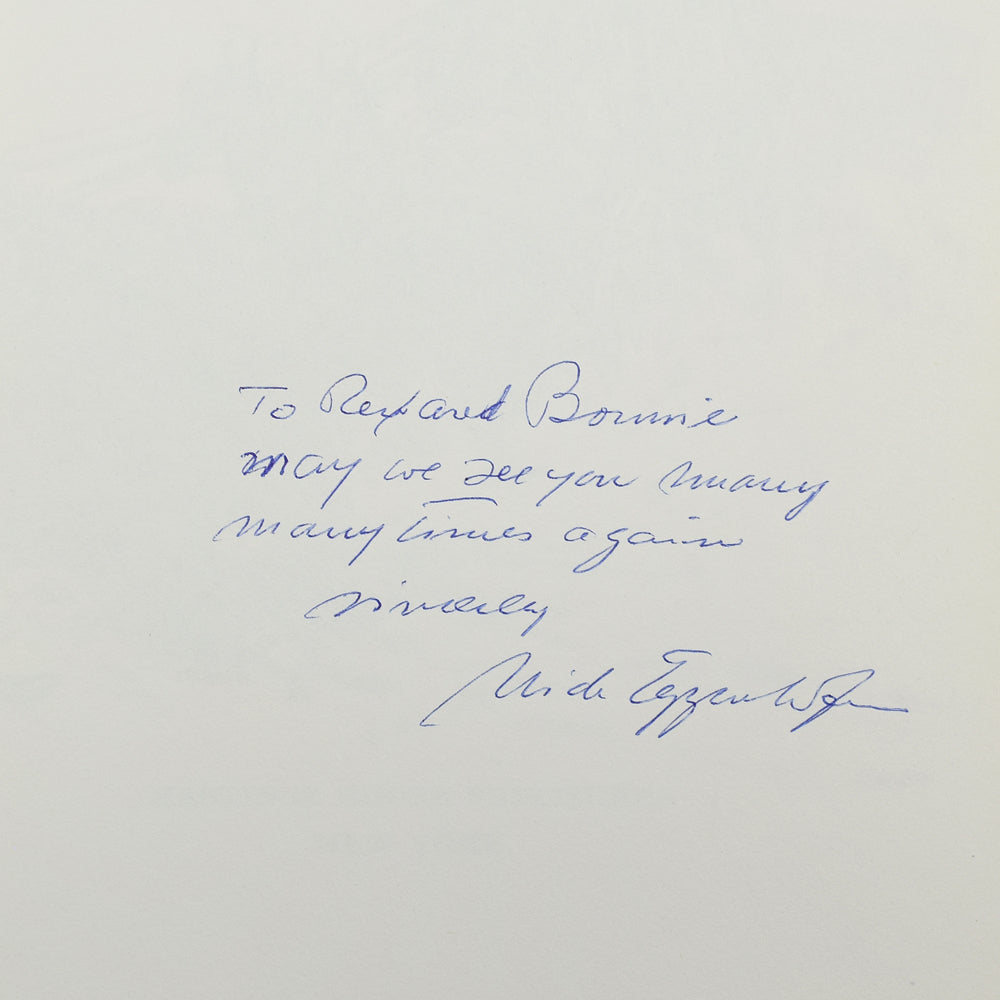 To Rex and Bonnie
may we see you many
many times again
sincerely
Nick Eggenhofer